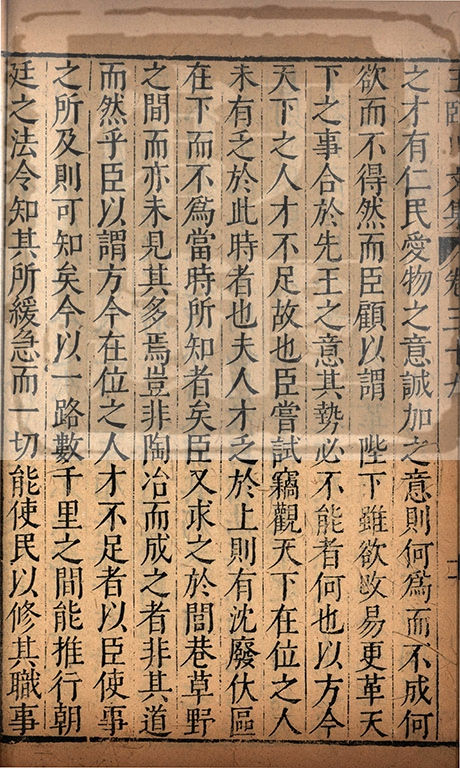 王臨川文集 卷三十九
之才有仁民愛物之意誠加之意則何爲而不成何
欲而不得然而臣顧以謂 陛下雖欲攺易更革天
下之事合於先王之意其勢必不能者何也以方今
天下之人才不足故也臣嘗試竊觀天下在位之人
未有乏於此時者也夫人才乏於上則有沈廢伏區
在下而不爲當時所知者矣臣又求之於閭巷草野
之間而亦未見其多焉豈非陶冶而成之者非其道
而然乎臣以謂方今在位之人才不足者以臣使事
之所及則可知矣今以一路數千里之間能推行朝
廷之法令知其所緩急而一切能使民以修其職事